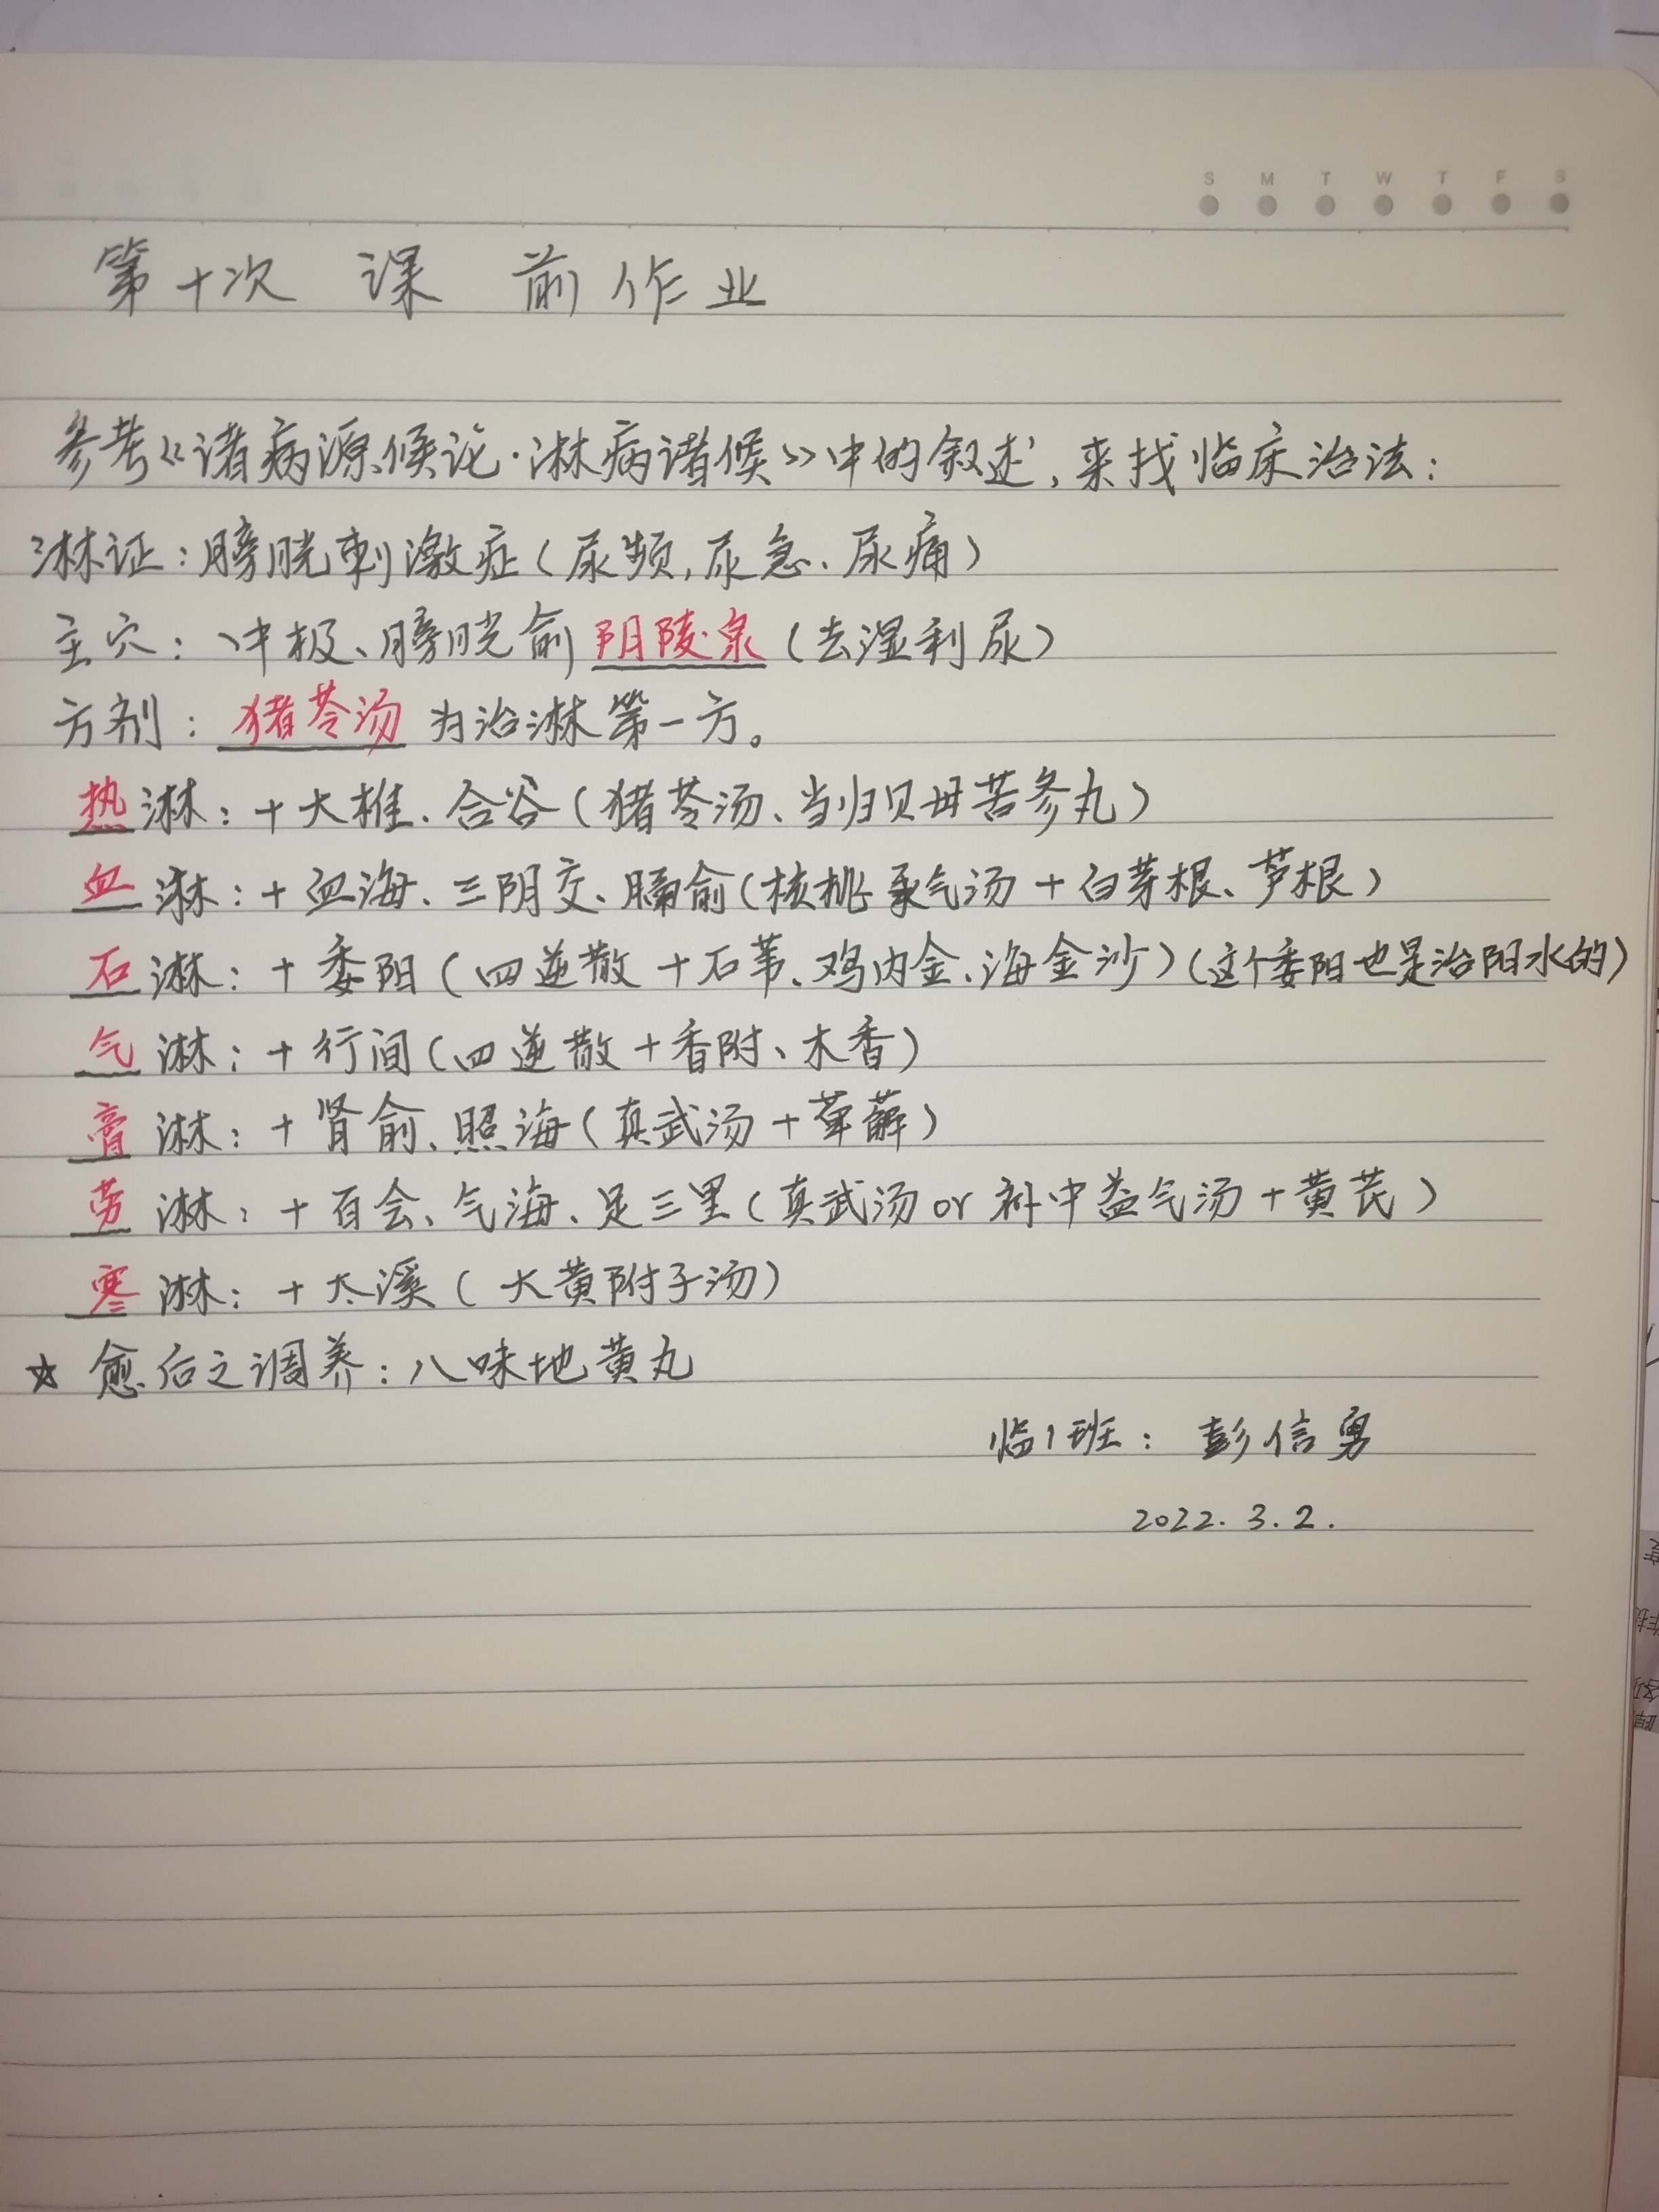 S M T W T F S
第十次 课 前作业
参考《诸病源候论·淋病诸候》中的叙述,来找临床治法:
淋证:膀胱刺激症(尿频,尿急、尿痛)
主穴:中极、膀胱俞 阴陵泉(去湿利尿)
方剂:猪苓汤 为治淋第一方。
热淋:+大椎、合谷(猪苓汤、当归贝母苦参丸)
血淋:+血海、三阴交、膈俞(核桃承气汤+白茅根、芦根)
石淋:+委阳(四逆散+石苇、鸡内金、海金沙)(这个委阳也是治阳水的)
气淋:+行间(四逆散+香附、木香)
膏淋:+肾俞、照海(真武汤+萆薢)
劳淋:+百会、气海、足三里(真武汤or补中益气汤+黄芪)
寒淋:+太溪(大黄附子汤)
☆愈后之调养:八味地黄丸
临1班:彭信勇
2022.3.2.